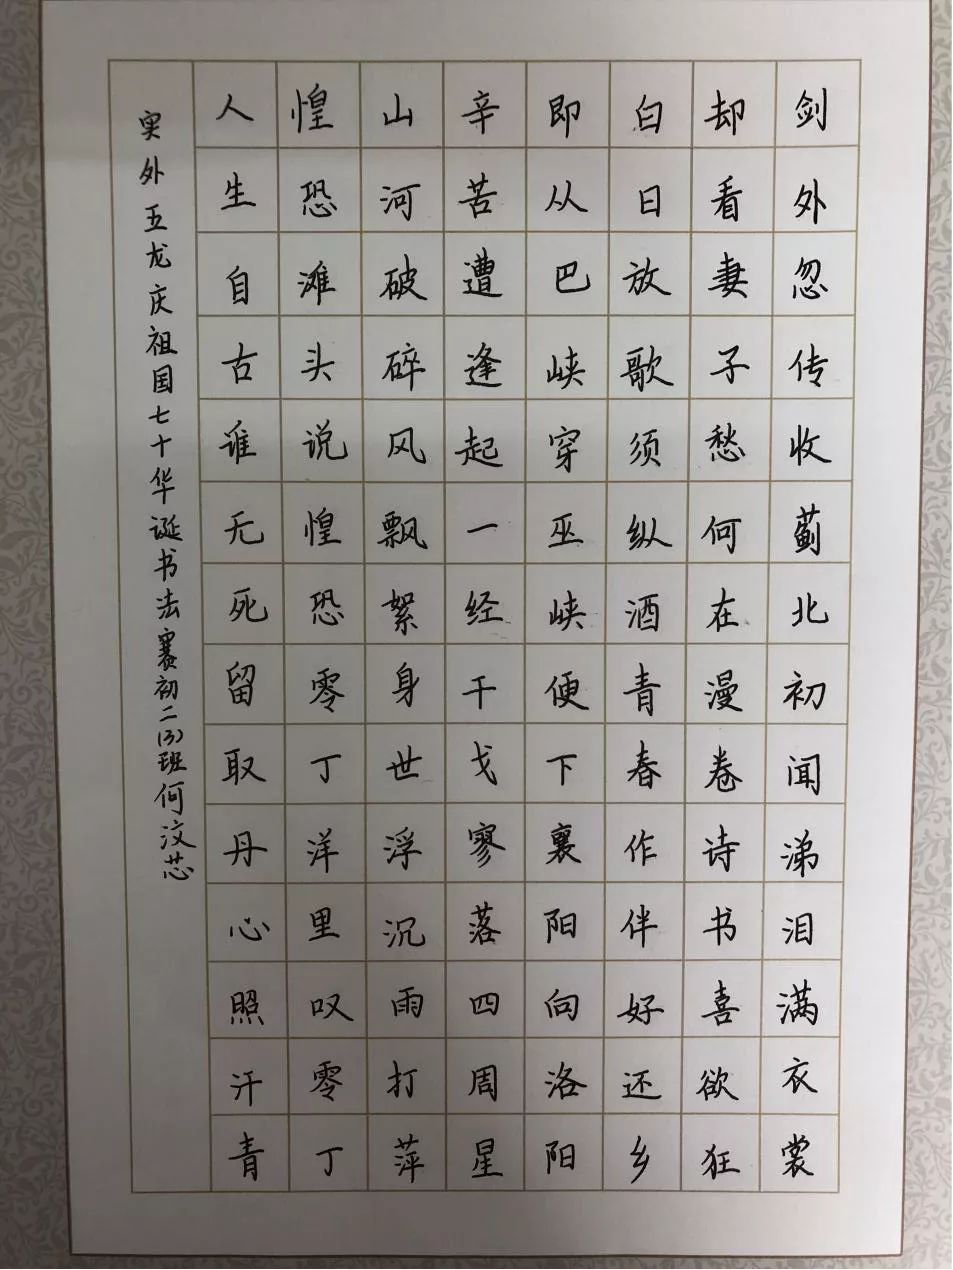 剑外忽传收蓟北初闻涕泪满衣裳
却看妻子愁何在漫卷诗书喜欲狂
白日放歌须纵酒青春作伴好还乡
即从巴峡穿巫峡便下襄阳向洛阳
辛苦遭逢起一经干戈寥落四周星
山河破碎风飘絮身世浮沉雨打萍
惶恐滩头说惶恐零丁洋里叹零丁
人生自古谁无死留取丹心照汗青
实外五龙庆祖国七十华诞书法赛初二(3)班何汶芯